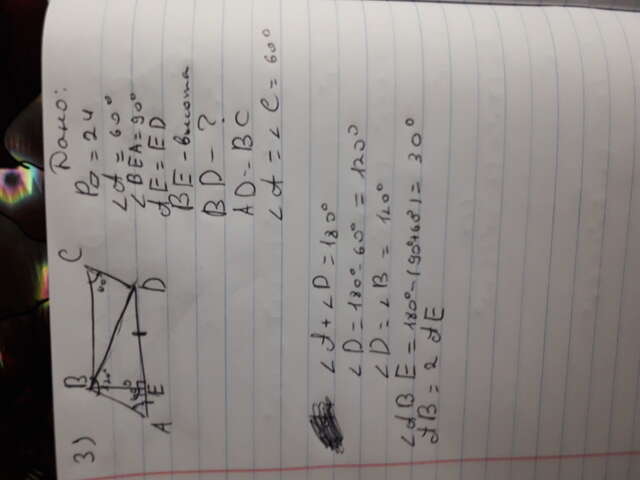 3)
B
C
60°
A
E
D
Дано:
P▱ = 24
∠A = 60°
∠BEA = 90°
AE = ED
BE - высота
BD - ?
AD - BC
∠A = ∠C = 60°
∠A + ∠D = 180°
∠D = 180° - 60° = 120°
∠D = ∠B = 120°
∠ABE = 180° - (90° + 60°) = 30°
AB = 2 AE